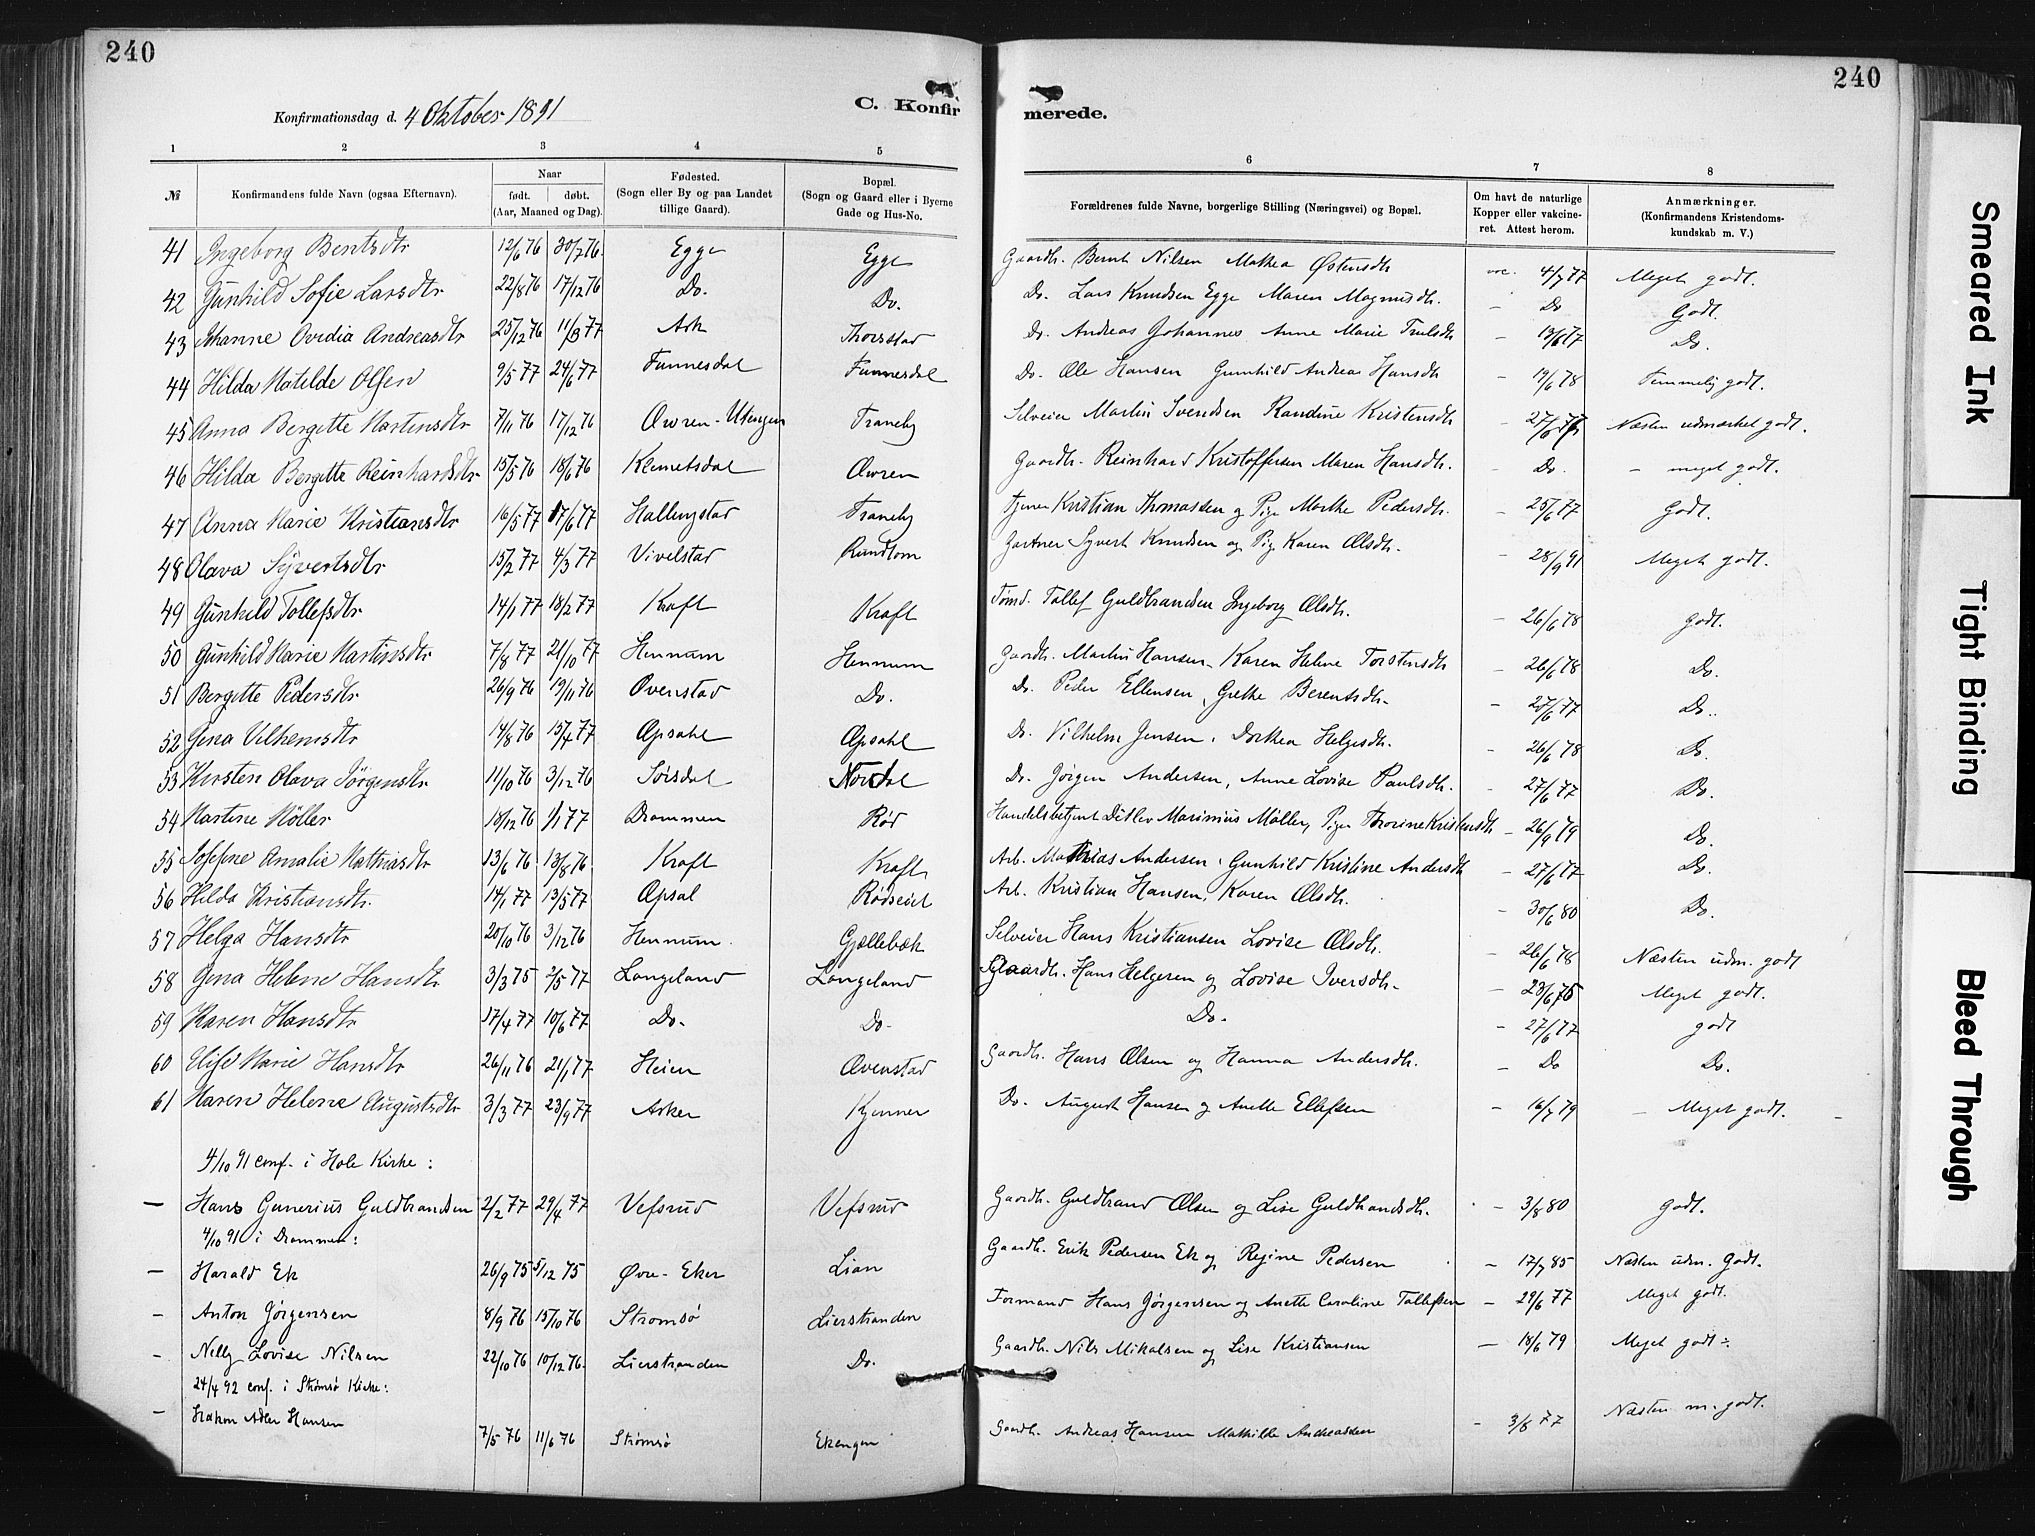 240
240
Konfirmationsdag d. 4 Oktober 1891
C. Konfir merede.
1 2 3 4 5 6 7 8
№ Konfirmandens fulde Navn (ogsaa Efternavn). Naar født. døbt. (Aar, Maaned og Dag). Fødested. (Sogn eller By og paa Landet tillige Gaard). Bopæl. (Sogn og Gaard eller i Byerne Gade og Hus-No. Forældrenes fulde Navne, borgerlige Stilling (Næringsvei) og Bopæl. Om havt de naturlige Kopper eller vakcineret. Attest herom. Anmærkninger. (Konfirmandens Kristendomskundskab m. V.)
41 Ingeborg Bentsdtr 12/6 76 30/7 76. Egge Egge Gaardb. Bernt Nilsen Mathea Østensdtr vac. 4/7 77 Meget godt.
42 Gunhild Sofie Larsdtr 22/8 76 17/12 76 Do. Do. Do. Lars Knudsen Egge Maren Magnusdtr. - Do Godt.
43 Johanne Ovidia Andreasdtr 25/12 76 11/3 77 Ask Thorstad Do. Andreas Johannes Anne Marie Trulsdtr - 19/6 77 Do.
44 Hilda Matilde Olsen 9/5 77 24/6 77 Funnesdal Funnesdal Do. Ole Hansen Gunhild Andrea Hansdtr - 19/6 78 Temmelig godt.
45 Anna Bergitte Martinsdtr 7/11 76 17/12 76 Øvren-Utengen Traneby Selveier Martin Svendsen Randine Kristensdtr - 27/6 77 Næsten udmærket godt.
46 Hilda Bergitte Reinhardsdtr 15/5 76 18/6 76 Klemetsdal Øvren Gaardb. Reinhard Kristoffersen Maren Hansdtr. - Do. - meget godt.
47 Anna Marie Kristiansdtr 16/5 77 17/6 77 Hallingstad Traneby Tjener Kristian Thomassen og Pige Marthe Pedersdtr. - 25/6 77 Godt.
48 Olava Syvertsdtr 15/2 77 4/3 77 Vivelstad Rundtom Gartner Syvert Knudsen og Pig. Karen Olsdtr. - 28/9 91 Meget godt.
49 Gunhild Tollefsdtr 14/1 77 18/2 77 Kraft Kraft Tømd. Tollef Guldbrandsen Ingeborg Olsdtr. - 26/6 78 godt.
50 Gunhild Marie Martinsdtr 7/8 77 21/10 77 Hennum Hennum Gaardb. Martin Hansen. Karen Helene Torstensdtr - 26/6 78 Do.
51 Bergitte Pedersdtr 26/9 76 19/11 76 Ovenstad Do. Do. Peder Ellensen, Grethe Berentsdtr. - 20/6 77 Do.
52 Gina Vilhemsdtr 14/8 76 15/4 77 Opsahl Opsahl Do. Vilhelm Jensen, Dorthea Helgesdtr. - 26/6 78 Do.
53 Kirsten Olava Jörgensdtr 11/10 76 3/12 76 Sørsdal Nordal Do. Jörgen Andersen, Anne Lovise Paulsdtr. - 27/6 77 Do.
54 Martine Möller 18/12 76 1/1 77 Drammen Rød Handelsbetjent Ditlev Marinius Möller, Pige Thorine Kristensdtr - 26/9 79 Do.
55 Josefine Amalie Mathiasdtr 13/6 76 13/8 76. Kraft Kraft Arb. Mathias Andersen, Gunhild Kristine Andersdtr - 27/6 77 Do.
56 Hilda Kristiansdtr. 14/1 77 13/5 77 Opsal Rødseiet Arb. Kristian Hansen, Karen Olsdtr. - 30/6 80 Do.
57 Helga Hansdtr 20/10 76 3/12 76 Hennum. Gjellebæk Selveier Hans Kristiansen Lovise Olsdtr. - 26/6 78 Næsten udm. godt
58 Gina Helene Hansdtr 3/3 75 2/5 77 Langeland Langeland Gaardb. Hans Helgesen og Lovise Iversdtr. - 23/6 75 Meget godt.
59 Karen Hansdtr 17/4 77 10/6 77 Do. Do. Do. - 27/6 77 godt
60 Elise Marie Hansdtr 26/11 76 21/1 77 Heien Ovenstad Gaardb. Hans Olsen og Hanna Andersdtr. - Do Do.
61 Maren Helene Augustsdtr 3/3 77 23/9 77 Asker Kjenner Do. August Hansen og Anette Ellefsen - 16/7 79 - Meget godt.
4/10 91 conf. i Hole Kirke:
- Hans Gunerius Guldbrandsen 2/2 77 29/4 77 Vefsrud Vefsrud Gaardb. Guldbrand Olsen og Lise Guldbrandsdtr. - 3/8 80 godt.
4/10 91 i Drammen:
- Harald Ek 26/9 75 5/12 75 Øvre-Eker Lian Gaardb. Erik Pedersen Ek og Regine Pedersen - 17/7 85 Næsten udm. Godt.
- Anton Jørgensen 8/9 76 15/10 76 Strømsø Lierstranden Formand Hans Jørgensen og Anette Caroline Tollefsen - 29/6 77 Meget godt.
- Nelly Lovise Nilsen 22/10 76 10/12 76. Lierstranden Do. Gaardb. Nils Mikalsen og Lise Kristiansen - 18/6 79 Meget godt.
24/4 92 conf. i Strømsø Kirke:
- Hakon Adler Hansen 7/5 76 11/6 76 Strømsø Ekengen Gaardb. Andreas Hansen Mathilde Andreassen - 3/8 77 Næsten m. godt.
Smeared Ink
Tight Binding
Bleed Through